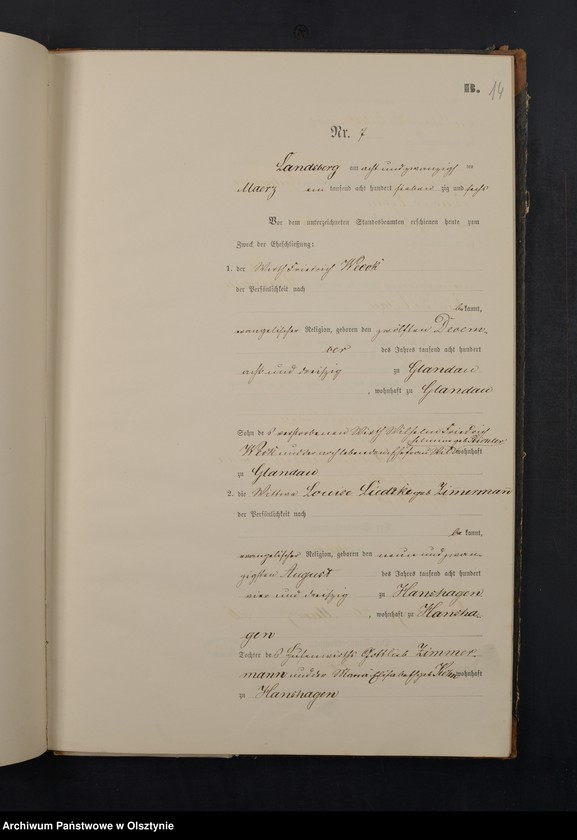 B. 14
Nr. 7
Landsberg am acht und zwanzigsten
Maerz ein tausend acht hundert sieben zig und sechs
Vor dem unterzeichneten Standesbeamten erschienen heute zum
Zweck der Eheschließung:
1. der Wirth Friedrich Wieck
der Persönlichkeit nach
be kannt,
evangelischer Religion, geboren den zwölften Decem-
ber des Jahres tausend acht hundert
acht und dreißzig zu Glandau
, wohnhaft zu Glandau
Sohn des verstorbenen Wirth Wilhelm Friedrich
und der noch lebenden Ehefrau wohnhaft
zu Glandau
2. die Wittwe Louise Liedtke geb. Zimermann
der Persönlichkeit nach
be kannt,
evangelischer Religion, geboren den neun und zwan-
zigsten August des Jahres tausend acht hundert
vier und dreißzig zu Hanshagen
, wohnhaft zu Hansha-
gen
Tochter des Hufenwirths Gottlieb Zimmer-
mann und der Maria Elisabeth geb. wohnhaft
zu Hanshagen
Archiwum Państwowe w Olsztynie